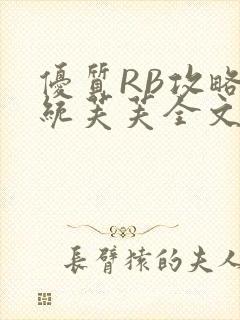 優質RB攻略
統芙芙全文
長臂猿的夫人